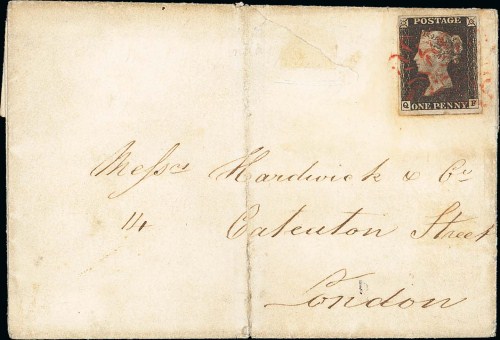 POSTAGE
Q F
ONE PENNY
Messrs Hardwick & Co
14 Cateaton Street
London